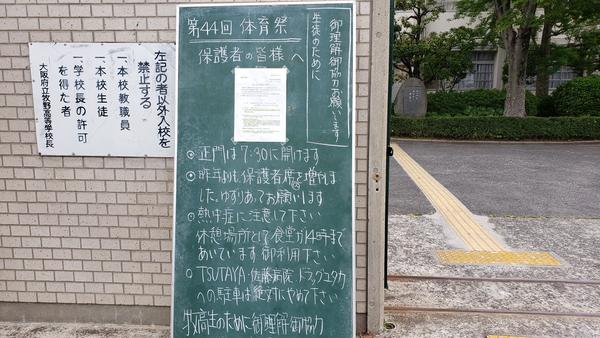 左記の者以外入校を
禁止する
一、本校教職員
一、本校生徒
一、学校長の許可
を得た者
大阪府立牧野高等学校長
第44回 体育祭
保護者の皆様へ
生徒のために
御理解御協力お願います
◎正門は7:30に開けます
◎昨年よりも保護者席を増やしま
した。ゆずりあってお願いします
◎熱中症に注意して下さい
休憩場所として食堂が14時まで
あいています 御利用下さい
◎TSUTAYA・佐藤病院・ドラッグユタカ
への駐車は絶対にやめて下さい
牧高生のために御理解御協力